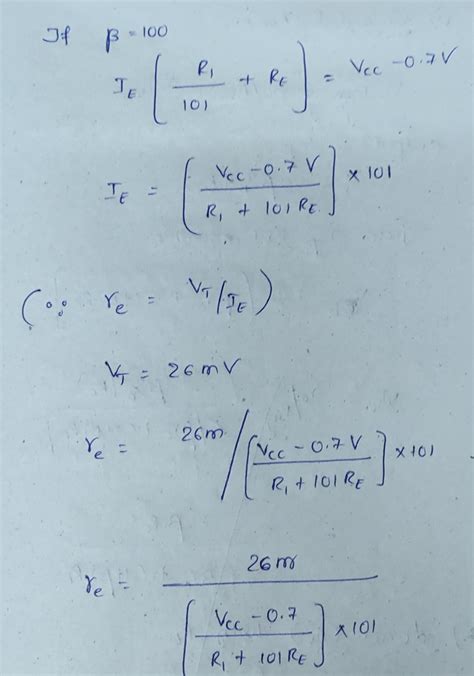 If β=100
I_E [ R_1/101 + R_E ] = V_CC - 0.7 V
I_E = [ (V_CC - 0.7 V)/(R_1 + 101 R_E) ] × 101
(∵ r_e = V_T/I_E)
V_T = 26 mV
r_e = 26m / [ (V_CC - 0.7 V)/(R_1 + 101 R_E) ] × 101
r_e = 26m / [ (V_CC - 0.7)/(R_1 + 101 R_E) ] × 101